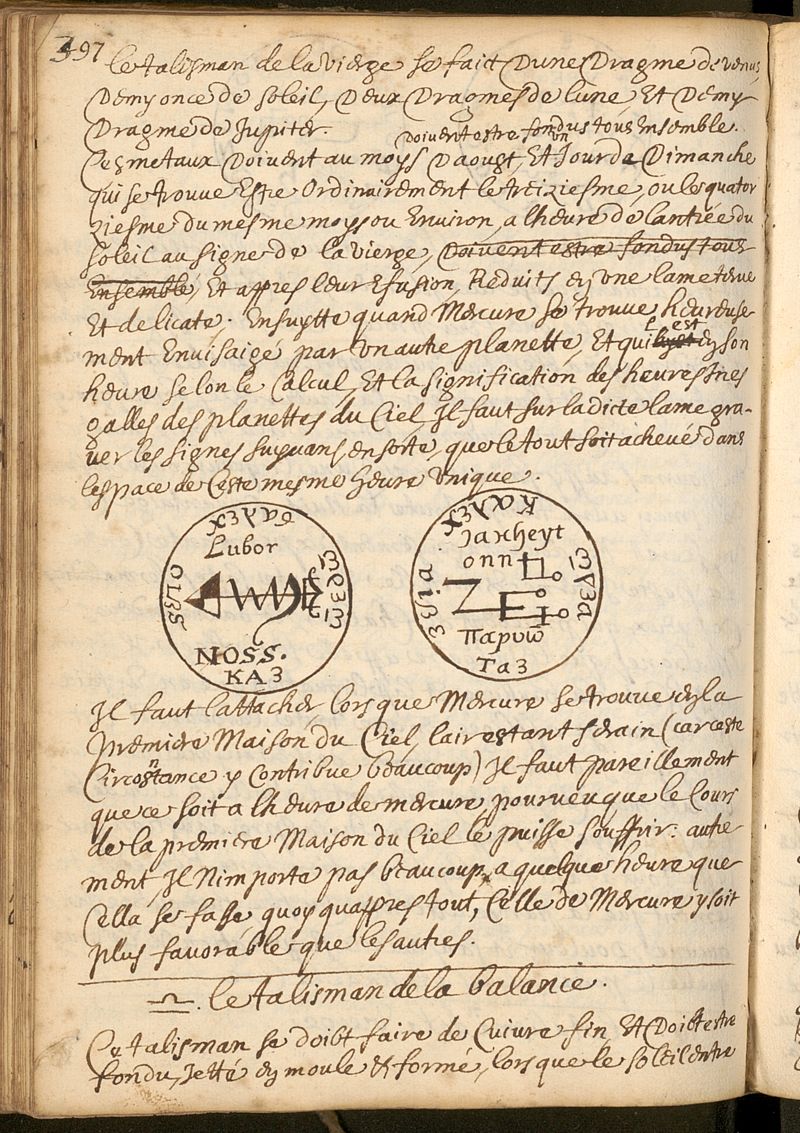 397
Le talisman de la vierge se faict D'une Dragme de venus,
Demy once de soleil, Deux Dragmes de lune, Et Demy
Dragme de Jupiter.
Doivent estre fondus tous Ensemble.
Ces metaux Doivent au moys D'aoust, Et un Jour de Dimanche
qui se trouve Estre Ordinairement le treiziesme, ou le quator
ziesme du mesme moys ou Environ, a lheure de lantrée du
soleil au signe de la vierge, Doivent estre fondus tous
Ensemble, Et appres leur Efusion, Reduits en une lame tenue
Et delicate. Ensuytte quand Mercure se trouve heureuse
ment Envisaigé par un autre planette, Et qu'il est en son
heure selon le Calcul, Et la signification des heures Ines
galles des planettes du Ciel, Il faut sur la dicte lame gra-
ver les signes suyvans, en sorte, que le tout soit achevé dans
lespace de Ceste mesme heure unique.
Lubor
NOSS.
KA3
Καλεχ
Jaxheyt
onn
παρυω
Τα3
Il faut l'attacher, lors que Mercure se trouve en la
premiere Maison du Ciel, l'air estant serain (car ceste
Circonstance y contribue beaucoup) Il faut pareillement
que ce soit a lheure de mercure, pourveu que le Cours
de la premiere Maison du Ciel le puisse souffrir: autre
ment, Il N'importe pas beaucoup, a quelque heure que
Cella se fasse quoy qu'appres tout, Celle de Mercure y soit
plus favorable que les autres.
♎. le talisman de la balance.
Ce talisman se doibt faire de Cuivre fin, Et Doibt estre
fondu, Jetté en moule et formé, lors que le soleil entre